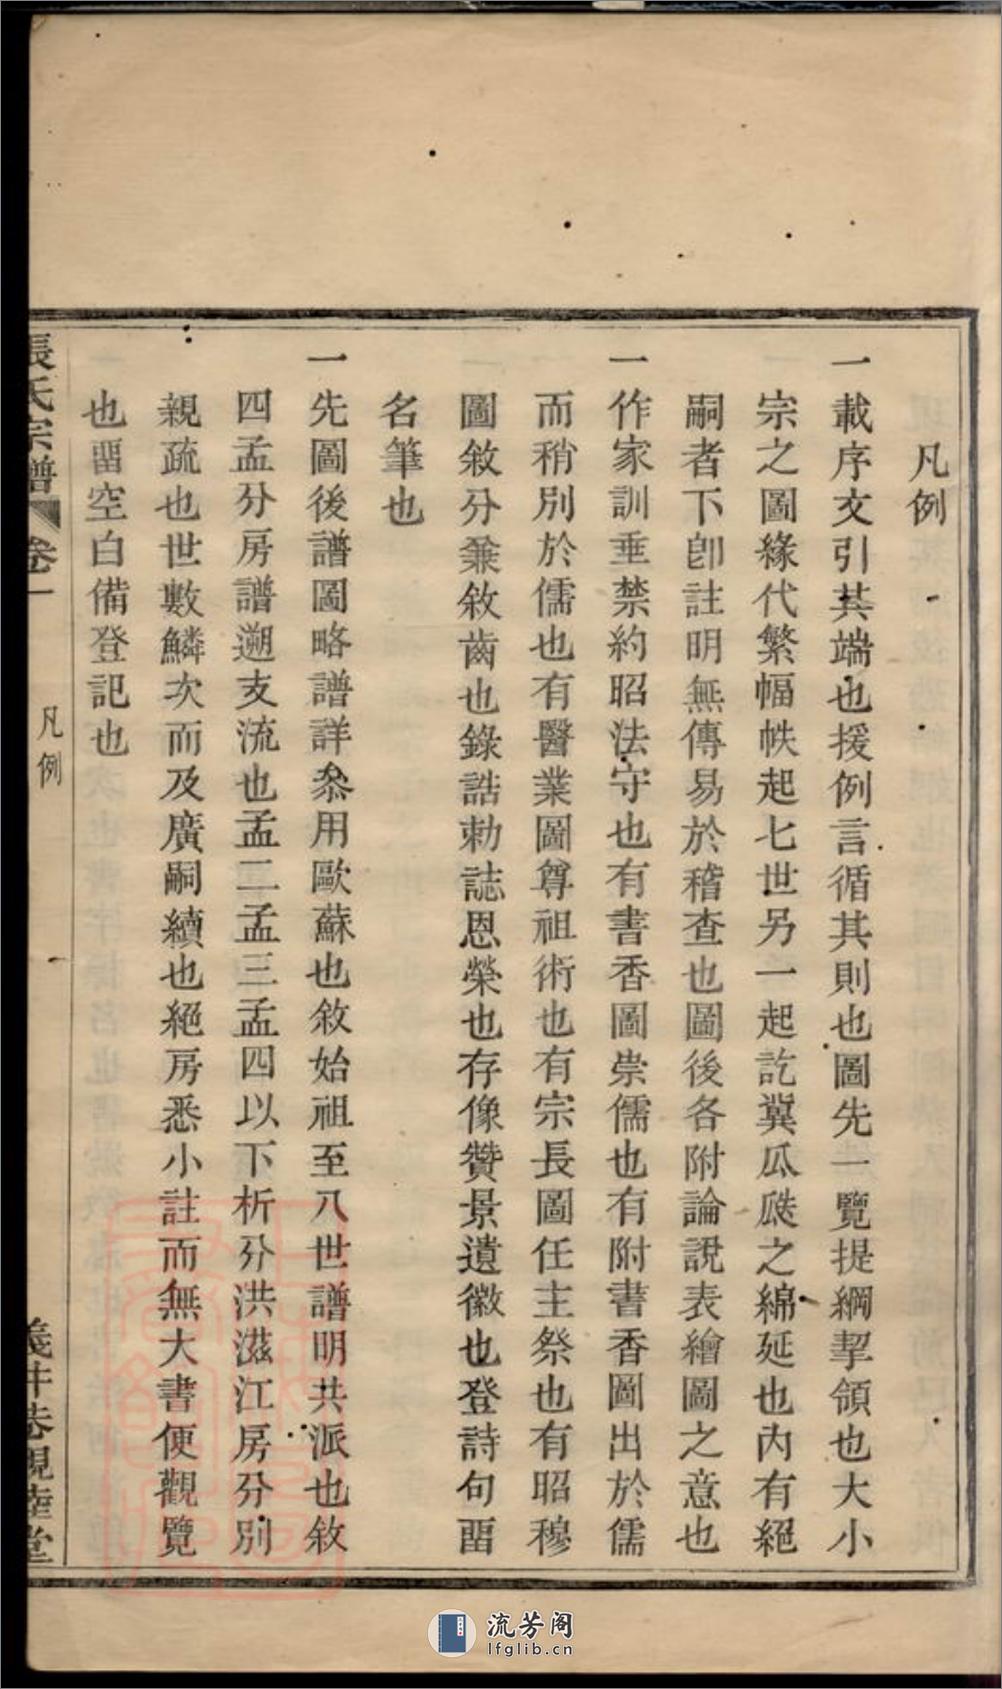 凡例
一載序文引其端也援例言循其則也圖先一覽提綱挈領也大小
宗之圖緣代繁幅帙起七世另一起訖冀瓜瓞之綿延也內有絕
嗣者下卽註明無傳易於稽查也圖後各附論說表繪圖之意也
一作家訓垂禁約昭法守也有書香圖崇儒也有附書香圖出於儒
而稍別於儒也有醫業圖尊祖術也有宗長圖任主祭也有昭穆
圖敘分兼敘齒也錄誥勅誌恩榮也存像贊景遺徽也登詩句畱
名筆也
一先圖後譜圖略譜詳叅用歐蘇也敘始祖至八世譜明共派也敘
四孟分房譜遡支流也孟二孟三孟四以下析分洪滋江房分別
親疏也世數鱗次而及廣嗣續也絕房悉小註而無大書便觀覽
也畱空白備登記也
張氏宗譜 卷一 凡例 義井巷親睦堂
流芳阁
lfglib.cn